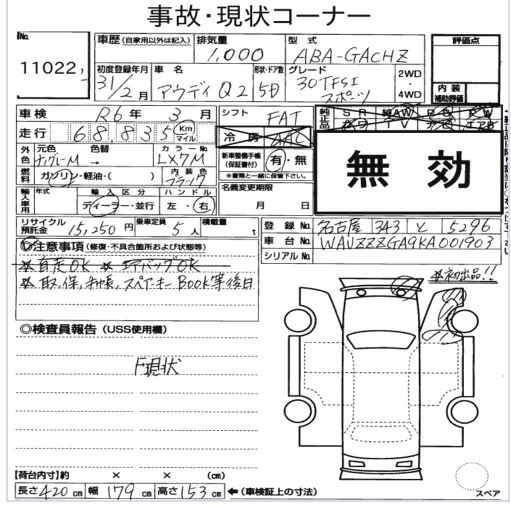 事故・現状コーナー
No. 11022
車歴 (自家用以外は記入) 排気量 1,000 型式 ABA-GACHZ 評価点
初度登録年月 31/2月 車名 アウディ Q2 形状・ドア数 5D グレード 30TFSI スポーツ 2WD・4WD 内装 補助評価
車検 R6年 3月 シフト FAT
走行 68,835 Km マイル 冷房 AAC
純正品 SR AW PS PW
TV エアB
無効
外色 元色 ナグレーM 色替 → カラーNo. LX7M
新車整備手帳(保証書付) 有・無
※書類と一緒に保管して下さい。
燃料 ガソリン・軽油・( ) 内装色 ブラック
名義変更期限 月 日
輸入車用 年式 輸入区分 ディーラー・並行 ハンドル 左・右
リサイクル預託金 15,250円 乗車定員 5人 積載量 t
登録No. 名古屋 343 と 5296
車台No. WAUZZZGA9KA001903
シリアルNo.
◎注意事項 (修復・不具合箇所および状態等)
※自走OK ※エアバッグOK
※取、保、キャ表、スペアキー Book等後日
※初出品!!
◎検査員報告 (USS使用欄)
F現状
【荷台内寸】約 × × (cm)
長さ 420 cm 幅 179 cm 高さ 153 cm ←(車検証上の寸法)
スペア